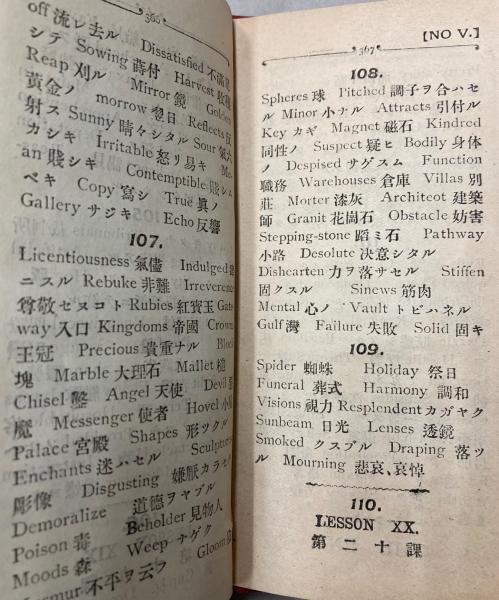 366
off 流レ去ル Dissatisfied 不滿足
シテ Sowing 蒔付 Harvest 收穫
Reap 刈ル Mirror 鏡 Golden
黃金ノ morrow 翌日 Reflects 反
射ス Sunny 晴々シタル Sour 氣六
カシキ Irritable 怒リ易キ Me-
an 賤シキ Contemptible 賤シム
ベキ Copy 寫シ True 眞ノ
Gallery サジキ Echo 反響
107.
Licentiousness 氣儘 Indulged
ニスル Rebuke 非難 Irreverence
尊敬セヌコト Rubies 紅寳玉 Gate-
way 入口 Kingdoms 帝國 Crown
王冠 Precious 貴重ナル Block
塊 Marble 大理石 Mallet 槌
Chisel 鑿 Angel 天使 Devil 惡
魔 Messenger 使者 Hovel 小屋
Palace 宮殿 Shapes 形ツクル
Enchants 迷ハセル Sculpture
彫像 Disgusting 嫌厭カラセル
Demoralize 道德ヲヤブル
Poison 毒 Beholder 見物人
Moods 森 Weep サナゲク Gloom
murmur 不平ヲ云フ
367
[NO V.]
108.
Spheres 球 Pitched 調子ヲ合ハセ
ル Minor 小ナル Attracts 引付ル
Key カギ Magnet 磁石 Kindred
同性ノ Suspect 疑ヒ Bodily 身体
ノ Despised サゲスム Function
職務 Warehouses 倉庫 Villas 別
莊 Morter 漆灰 Architeot 建築
師 Granit 花崗石 Obstacle 妨害
Stepping-stone 蹈ミ石 Pathway
小路 Desolute 決意シタル
Dishearten 力ヲ落サセル Stiffen
固クスル Sinews 筋肉
Mental 心ノ Vault トビハネル
Gulf 灣 Failure 失敗 Solid 固キ
109.
Spider 蜘蛛 Holiday 祭日
Funeral 葬式 Harmony 調和
Visions 視力 Resplendent カガヤク
Sunbeam 日光 Lenses 透鏡
Smoked クスブル Draping 落ツ
ル Mourning 悲哀、哀悼
110.
LESSON XX.
第二十課